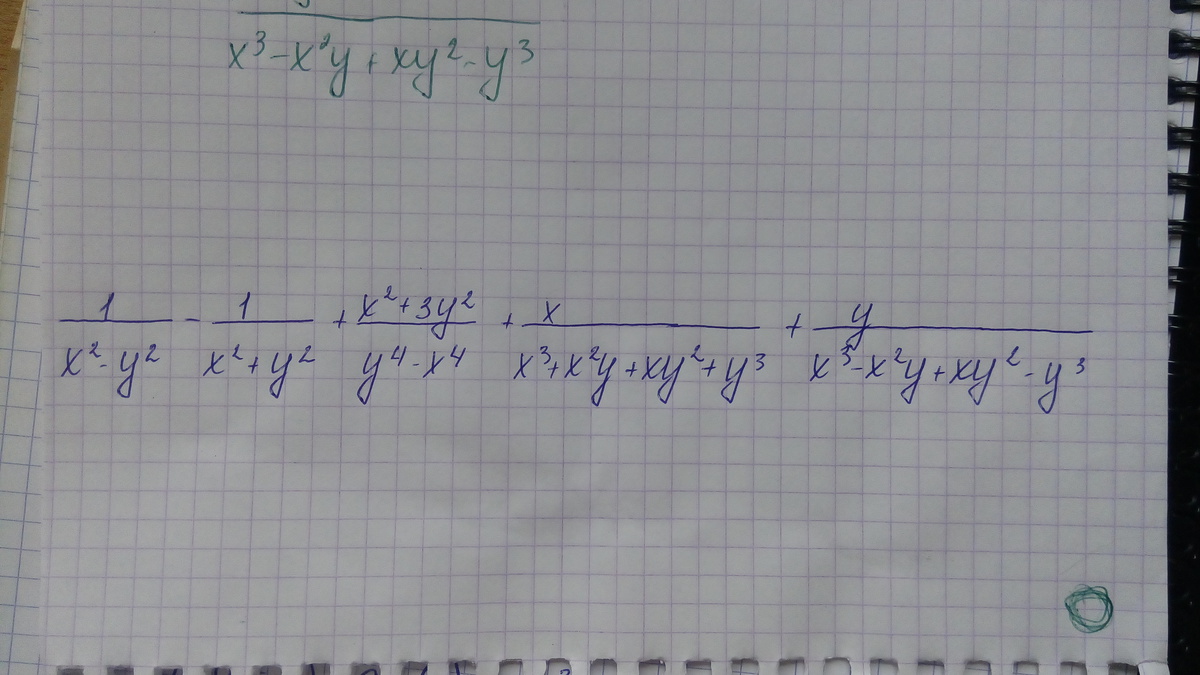 x³-x²y+xy²-y³
1/(x²-y²) - 1/(x²+y²) + (x²+3y²)/(y⁴-x⁴) + x/(x³+x²y+xy²+y³) + y/(x³-x²y+xy²-y³)